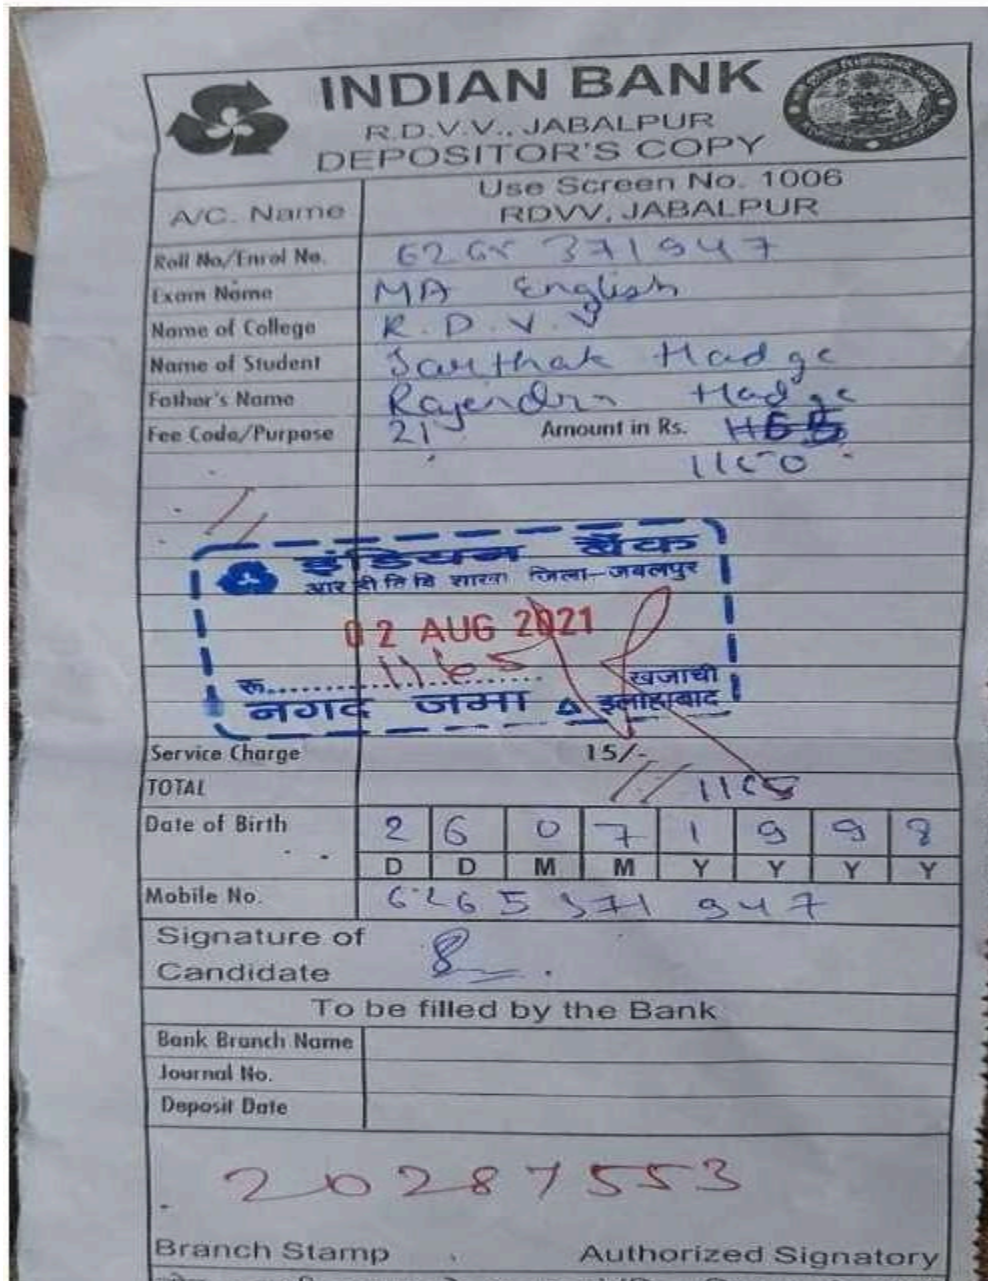 INDIAN BANK
R.D.V.V., JABALPUR
DEPOSITOR'S COPY
A/C. Name Use Screen No. 1006
RDVV, JABALPUR
Roll No/Enrol No. 6265 371947
Exam Name MA English
Name of College R.D.V.V
Name of Student Sarthak Hadge
Father's Name Rajendra Hadge
Fee Code/Purpose 21 Amount in Rs.
1150
इंडियन बैंक
आर डी वि वि शाखा जिला-जबलपुर
02 AUG 2021
रू. 1165 खजांची
नगद जमा इलाहाबाद
Service Charge 15/-
TOTAL 1165
Date of Birth 2 6 0 7 1 9 9 8
D D M M Y Y Y Y
Mobile No. 6265 371 947
Signature of
Candidate
To be filled by the Bank
Bank Branch Name
Journal No.
Deposit Date
20287553
Branch Stamp Authorized Signatory